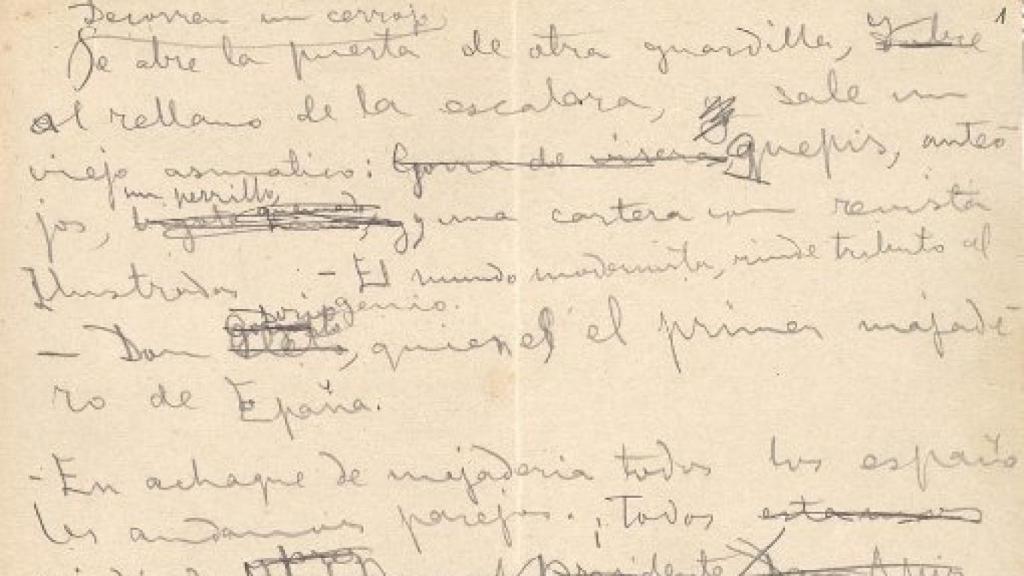 Decorren un cerrojo, 1
Se abre la puerta de otra guardilla,
al rellano de la escalera, sale un
viejo asmatico: Gorra de visera quepis, anteo
un perrillo,
jos, y una cartera con revista
Ilustradas - El mundo modernista, rinde tributo al
genio.
- Don quien es el primer majade
ro de España.
- En achaque de majaderia todos los españo
les andamos parejos. ¡Todos estamos
Presidente